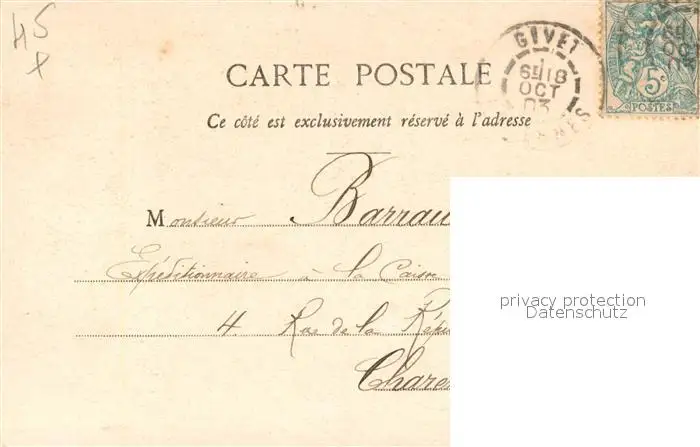 45
x
GIVET
6E 18
OCT
03
CARTE POSTALE
5c
POSTES
Ce côté est exclusivement réservé à l'adresse
Monsieur Barrau
Expéditionnaire à la Caiss
4. Rue de la Répu
Charen
privacy protection
Datenschutz